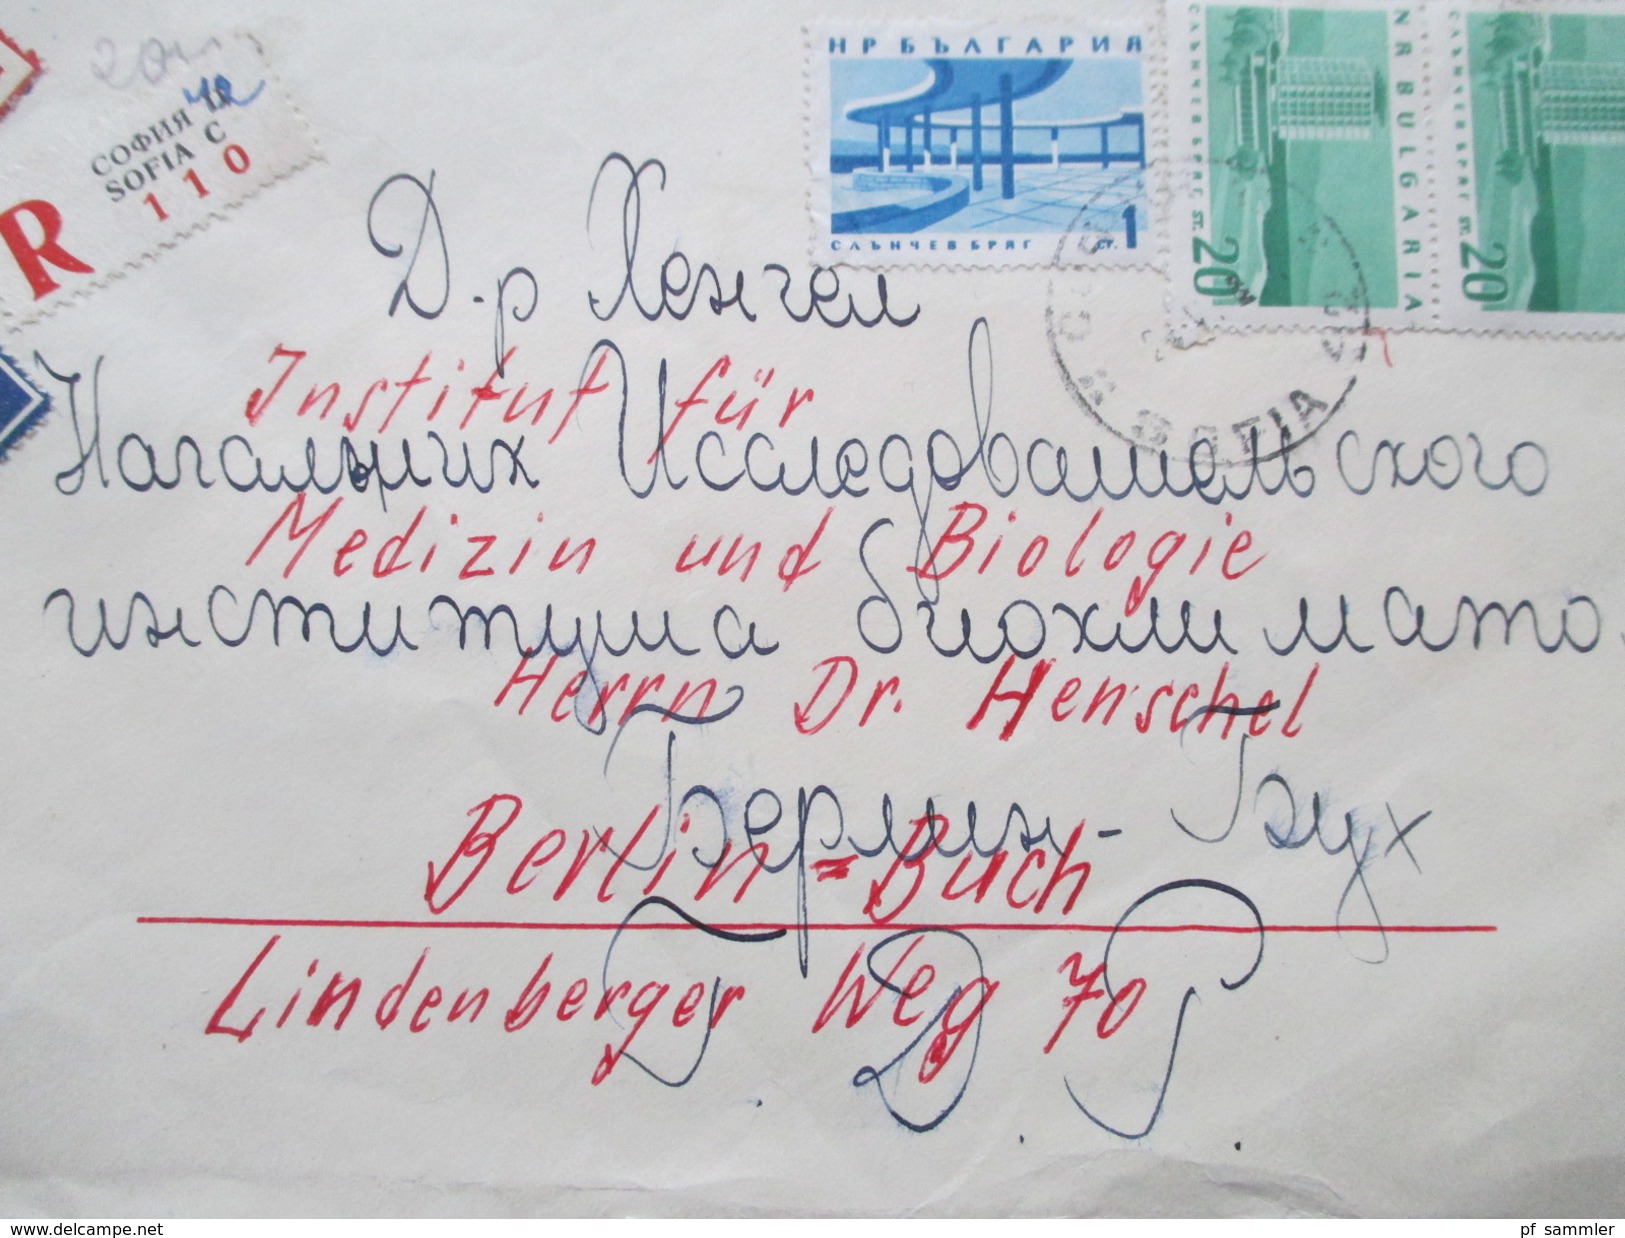 СОФИЯ
SOFIA C
110
R
НР БЪЛГАРИЯ
СЛЪНЧЕВ БРЯГ СТ. 1
СЛЪНЧЕВ БРЯГ СТ. 20
NR BULGARIA
СЛЪНЧЕВ БРЯГ СТ. 20
SOFIA
Д-р Хенгел
Institut für
Начальник Исследовательского
Medizin und Biologie
института биохим и мато.
Herrn Dr. Henschel
Берлин - Бух
Berlin = Buch
Lindenberger Weg 70
Г. Д. Р.
www.delcampe.net
pf_sammler